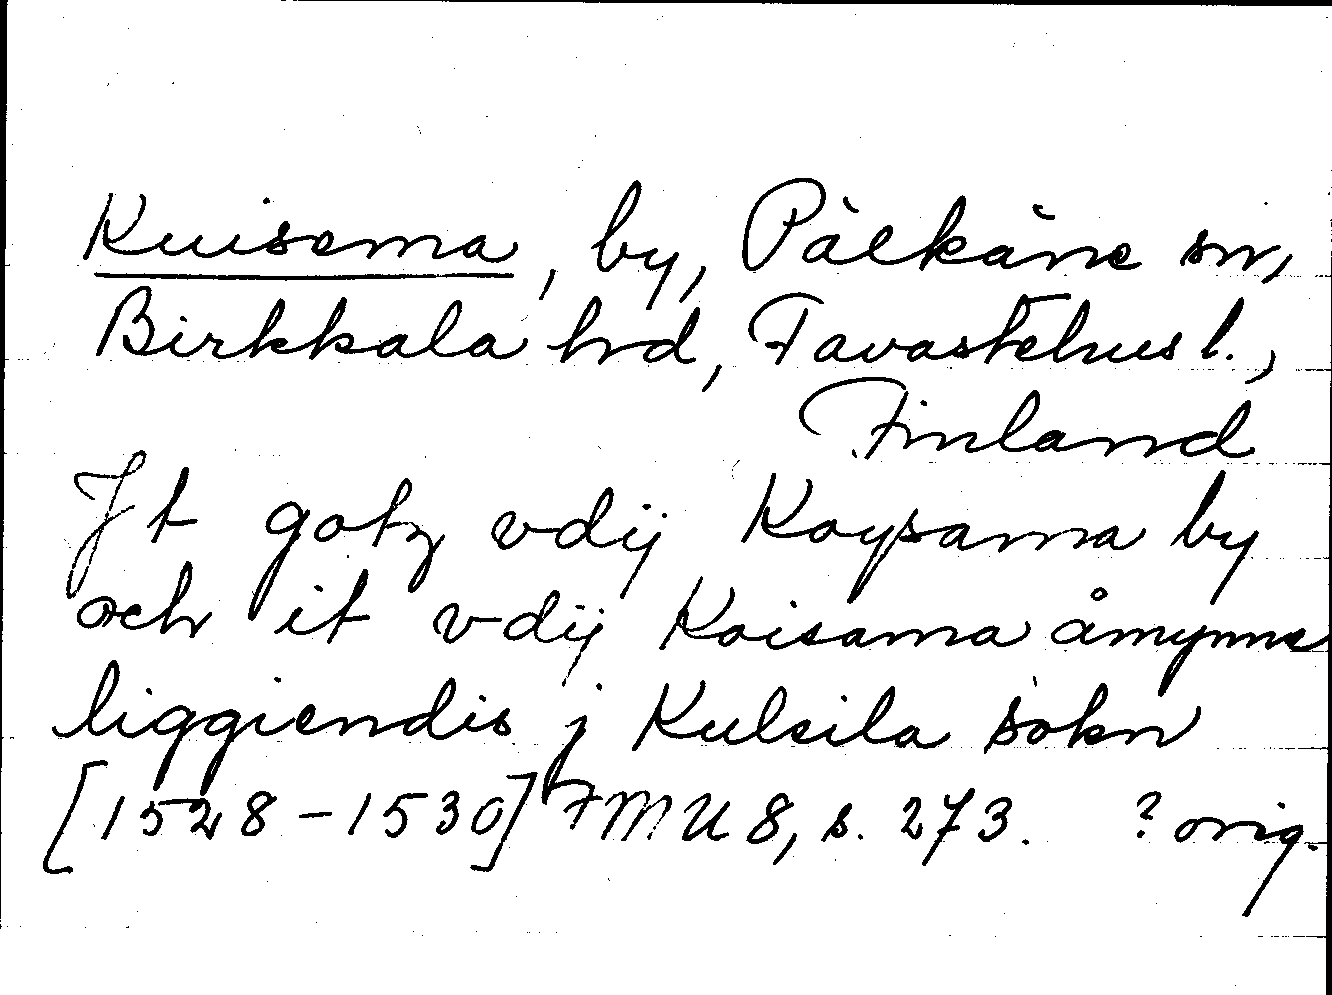 Kuisema, by, Pälkäne sn,
Birkkala hrd, Tavastehus l.,
Finland
Jt gotz vdij Koysama by
och it vdij Koisama åmynne
liggiendis j Kulsila sokn
[1528-1530] FMU 8, s. 273. ? orig.